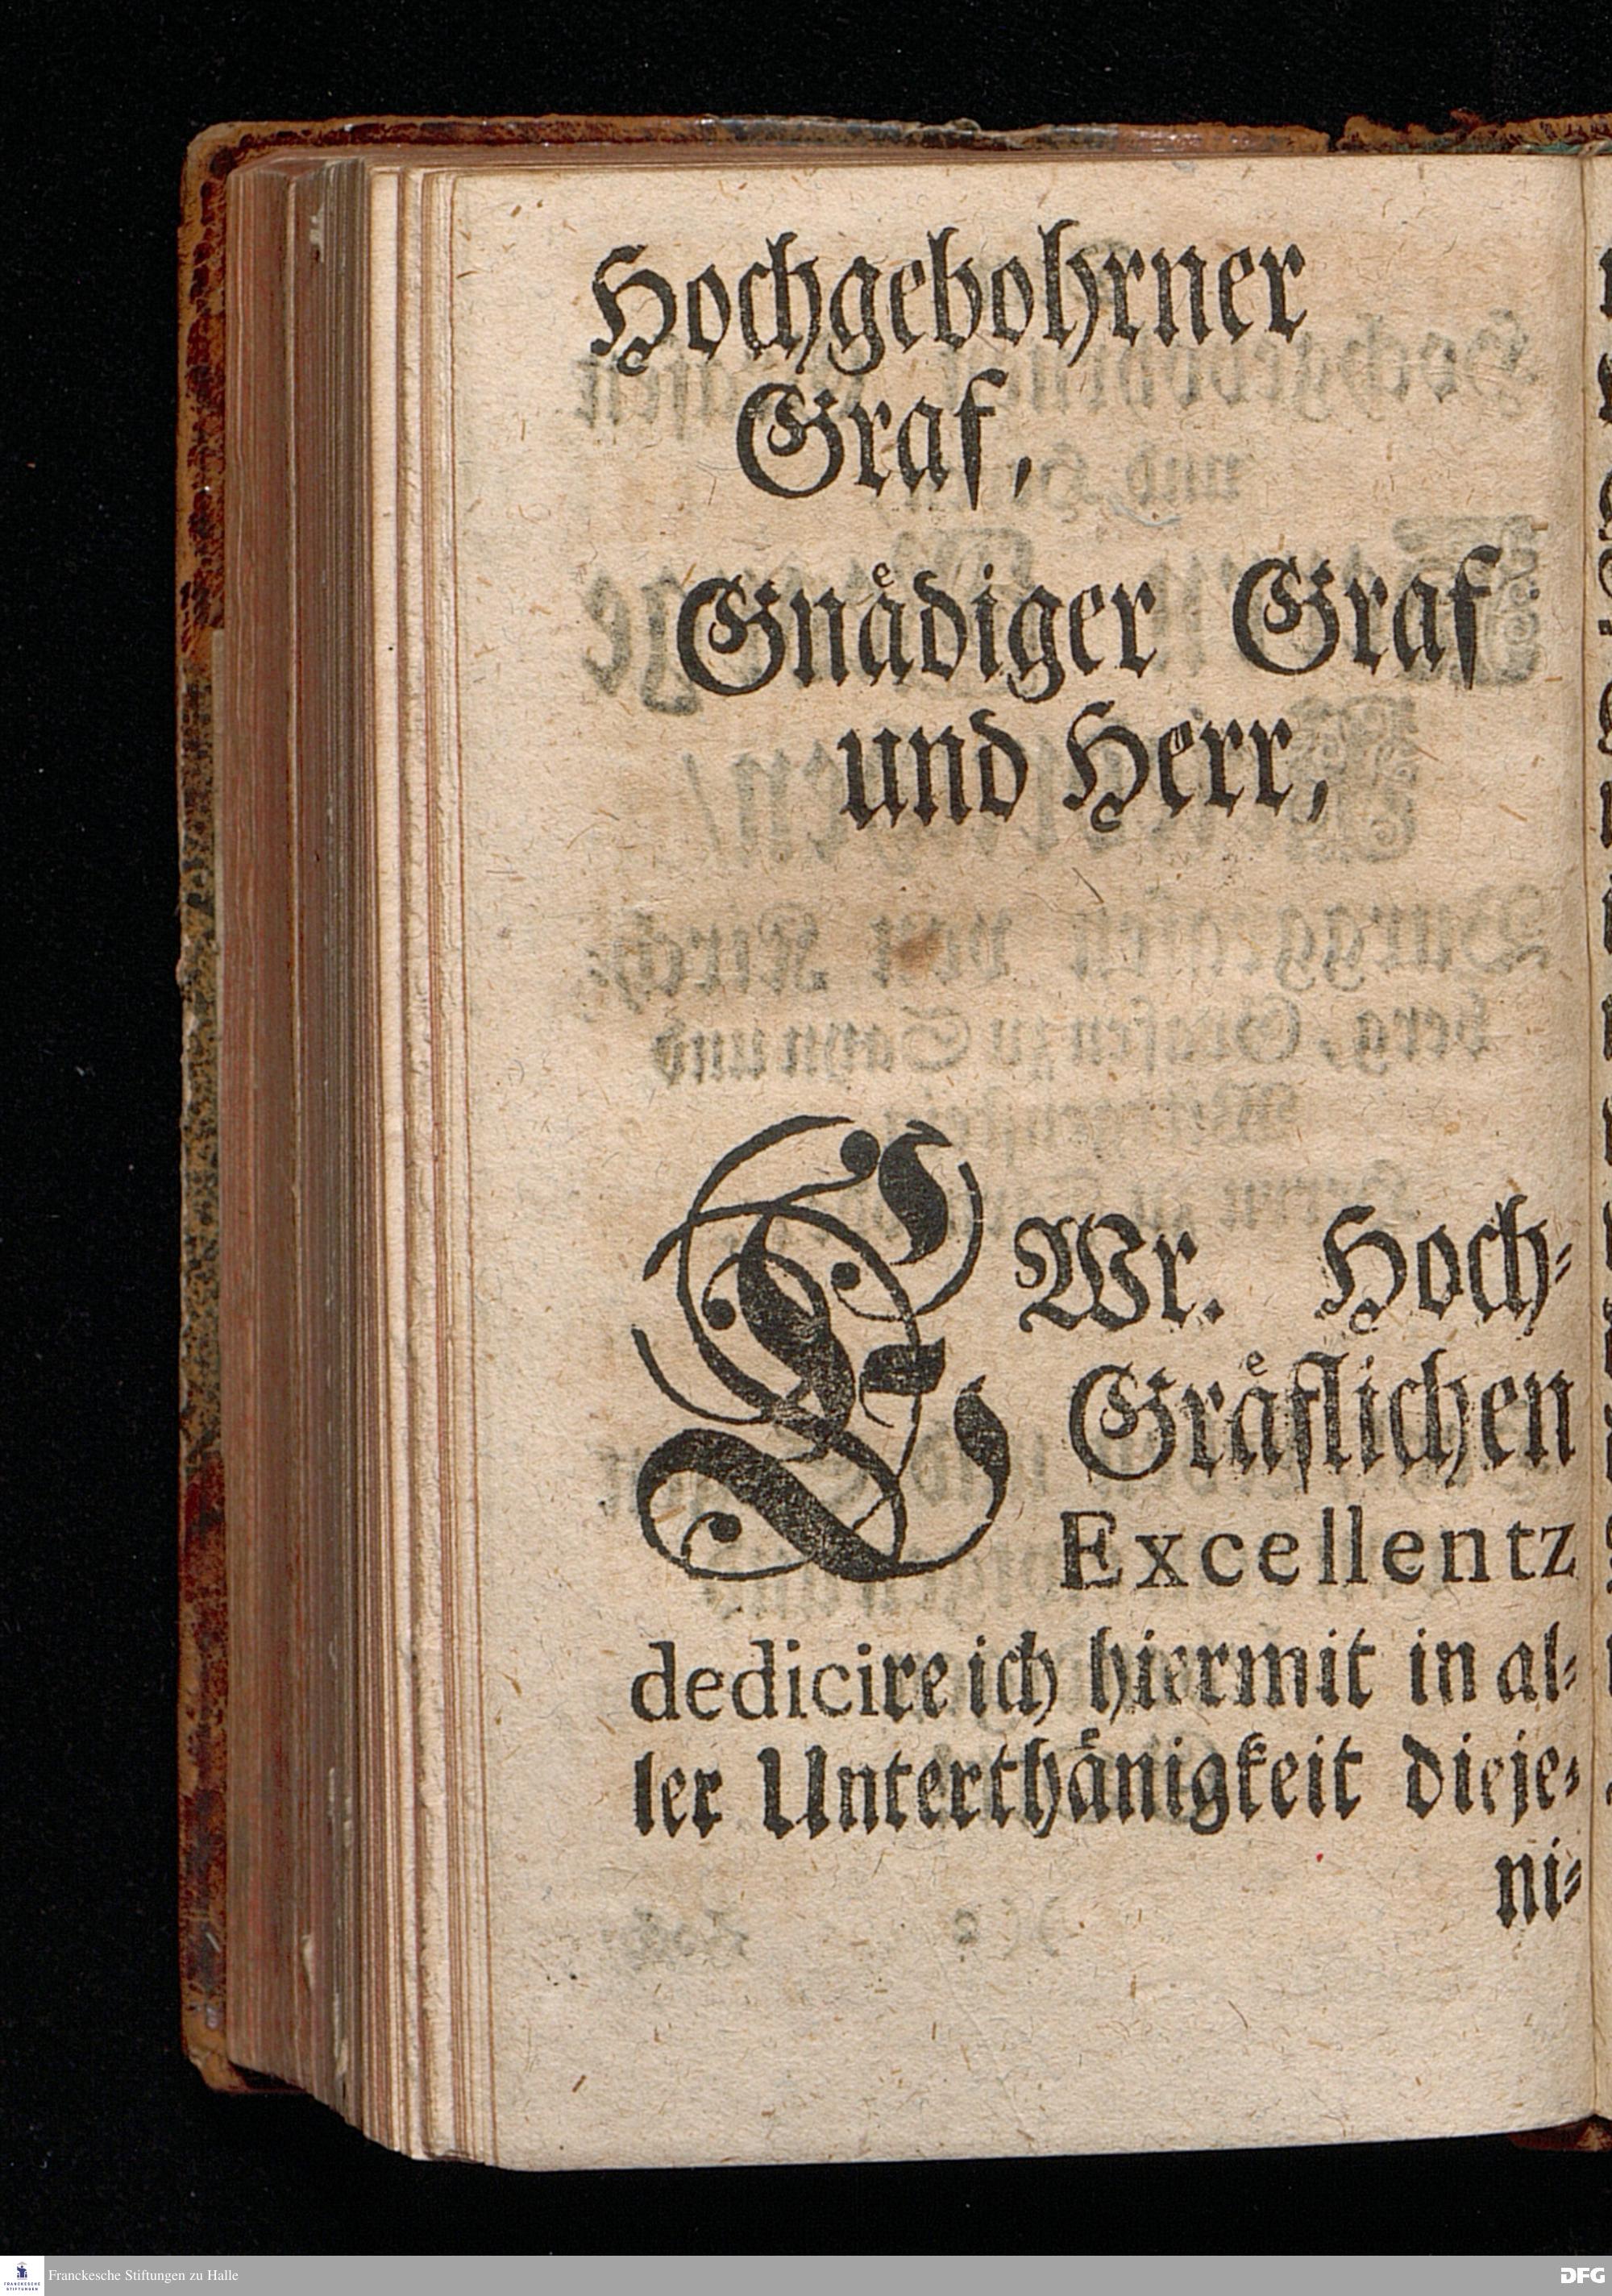 Hochgebohrner
Graf,
Gnaͤdiger Graf
und Herr,
EWr. Hoch-
Graͤflichen
Excellentz
dedicire ich hiermit in al-
ler Unterthaͤnigkeit dieje-
ni-
FRANCKESCHE STIFTUNGEN
Franckesche Stiftungen zu Halle
DFG